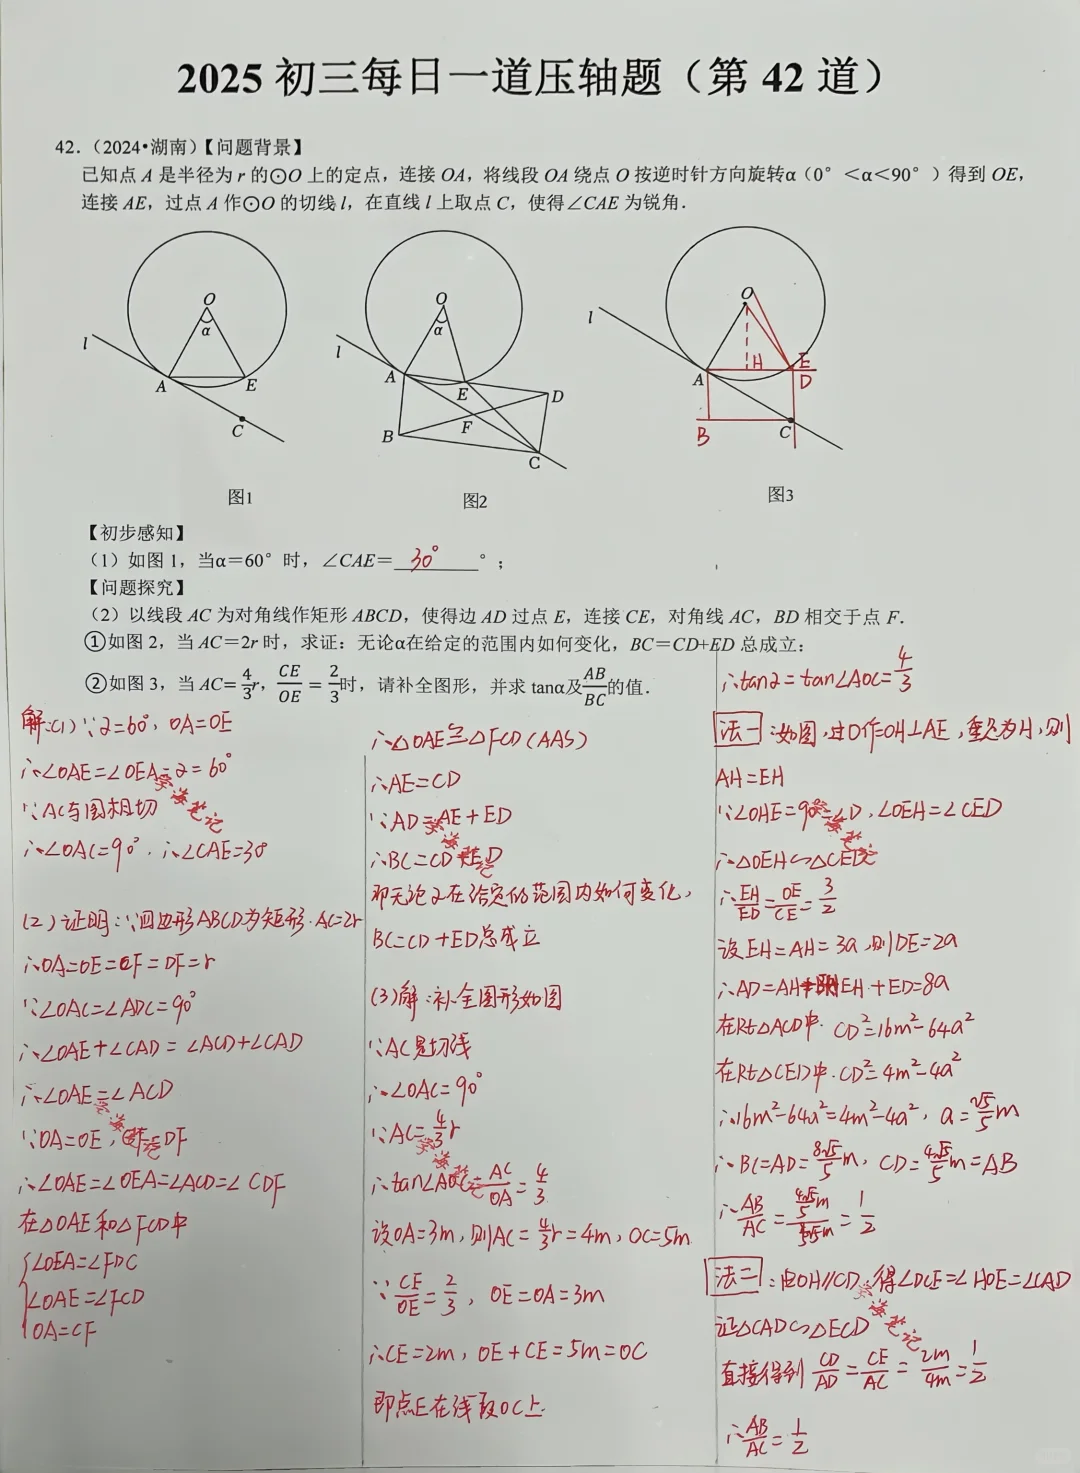 2025 初三每日一道压轴题（第 42 道）
42.（2024•湖南）【问题背景】
已知点 A 是半径为 r 的⊙O 上的定点，连接 OA，将线段 OA 绕点 O 按逆时针方向旋转α（0°＜α＜90°）得到 OE，
连接 AE，过点 A 作⊙O 的切线 l，在直线 l 上取点 C，使得∠CAE 为锐角．
O
α
l
A
E
C
图1
O
α
l
A
E
D
B
F
C
图2
O
l
H
E
A
D
B
C
图3
【初步感知】
（1）如图 1，当α＝60°时，∠CAE＝ 30° °；
【问题探究】
（2）以线段 AC 为对角线作矩形 ABCD，使得边 AD 过点 E，连接 CE，对角线 AC，BD 相交于点 F．
①如图 2，当 AC＝2r 时，求证：无论α在给定的范围内如何变化，BC＝CD+ED 总成立；
②如图 3，当 AC=4/3r，CE/OE=2/3时，请补全图形，并求 tanα及AB/BC的值．
解:(1)∵α=60°, OA=OE
∴∠OAE=∠OEA=α=60°
∵AC与圆相切
∴∠OAC=90°．∴∠CAE=30°
(2)证明:∵四边形ABCD为矩形．AC=2r
∴OA=OE=CF=DF=r
∵∠OAC=∠ADC=90°
∴∠OAE+∠CAD=∠ACD+∠CAD
∴∠OAE=∠ACD
∵OA=OE, CF=DF
∴∠OAE=∠OEA=∠ACD=∠CDF
在△OAE和△FCD中
{∠OEA=∠FDC
∠OAE=∠FCD
OA=CF
∴△OAE≌△FCD(AAS)
∴AE=CD
∵AD=AE+ED
∴BC=CD+ED
即无论α在给定的范围内如何变化,
BC=CD+ED总成立
(3)解:补全图形如图
∵AC是切线
∴∠OAC=90°
∵AC=4/3r
∴tan∠AOC=AC/OA=4/3
设OA=3m,则AC=4/3r=4m, OC=5m
∵CE/OE=2/3, OE=OA=3m
∴CE=2m, OE+CE=5m=OC
即点E在线段OC上
∴tanα=tan∠AOC=4/3
法一:如图,过O作OH⊥AE,垂足为H,则
AH=EH
∵∠OHE=90°=∠D,∠OEH=∠CED
∴△OEH∽△CED
∴EH/ED=OE/CE=3/2
设EH=AH=3a,则DE=2a
∴AD=AH+EH+ED=8a
在Rt△ACD中．CD²=16m²-64a²
在Rt△CED中．CD²=4m²-4a²
∴16m²-64a²=4m²-4a², a=√5/5m
∴BC=AD=8√5/5m, CD=4√5/5m=AB
∴AB/AC=4√5/5m/8√5/5m=1/2
法二:由OH∥CD,得∠DCE=∠HOE=∠CAD
证△CAD∽△ECD
直接得到CD/AD=CE/AC=2m/4m=1/2
∴AB/AC=1/2
学海笔记
学海笔记
学海笔记
学海笔记
学海笔记
学海笔记